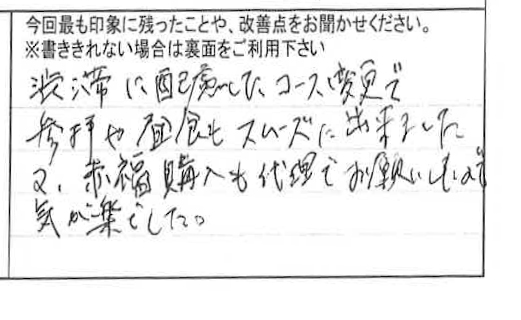 今回最も印象に残ったことや、改善点をお聞かせください。
※書ききれない場合は裏面をご利用下さい
渋滞に配慮した、コース変更で
参拝や昼食もスムーズに出来ました
又、赤福購入も代理でお願いしたので
気が楽でした。